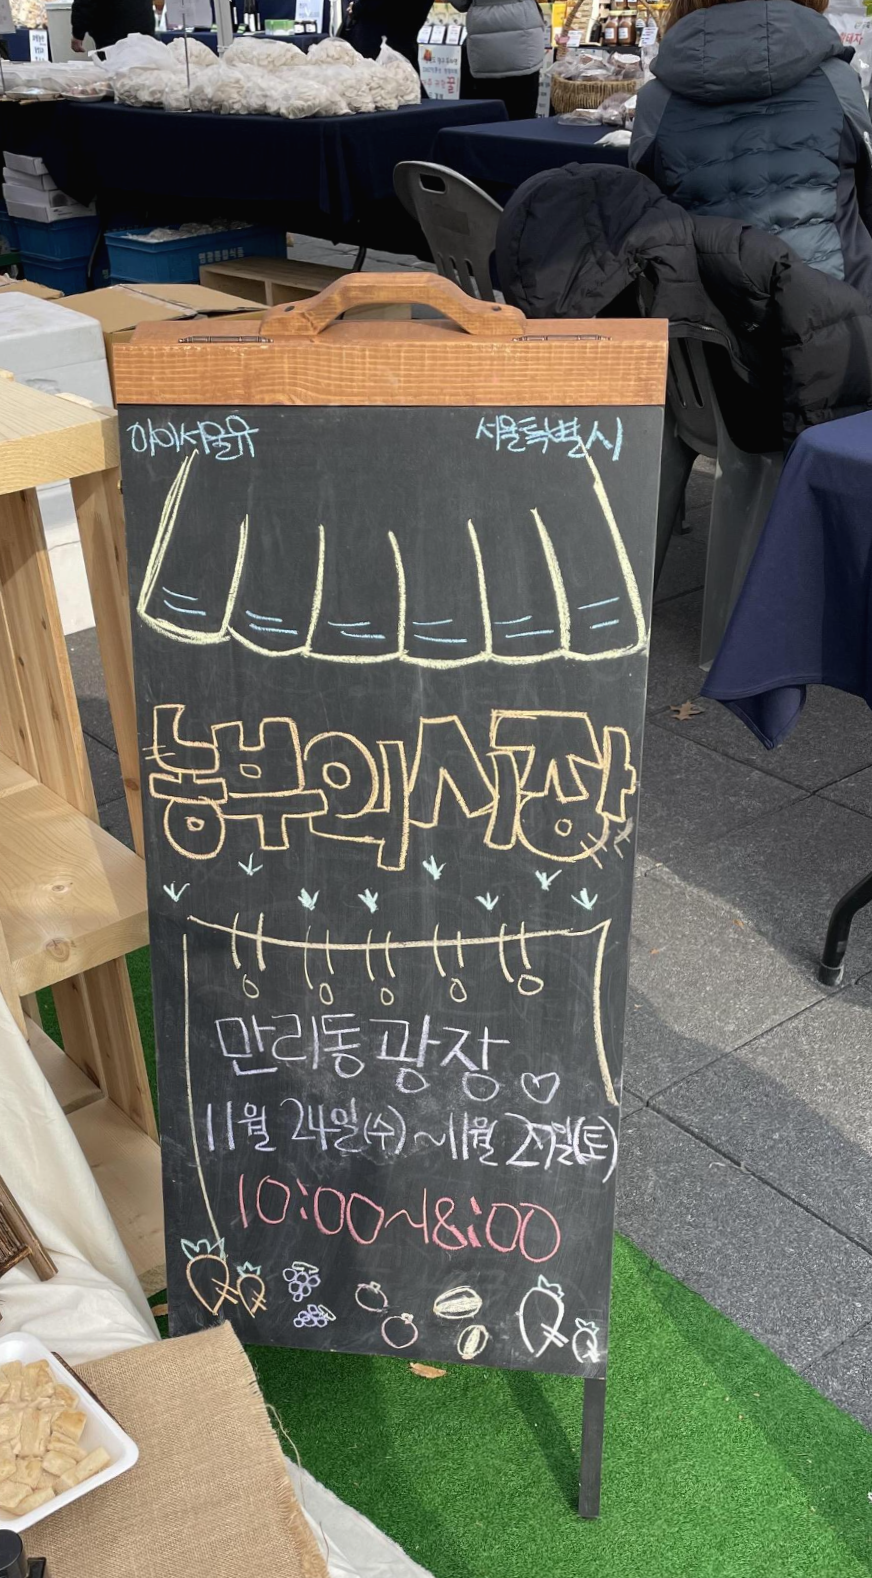 아이서울유 서울특별시
농부의시장
만리동광장
11월 24일(수)~11월 27일(토)
10:00~18:00